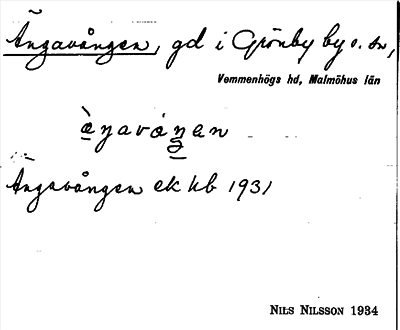 Ängavången, gd i Grönby by o. sn,
Vemmenhögs hd, Malmöhus län
Ängavången ek kb 1931
NILS NILSSON 1934